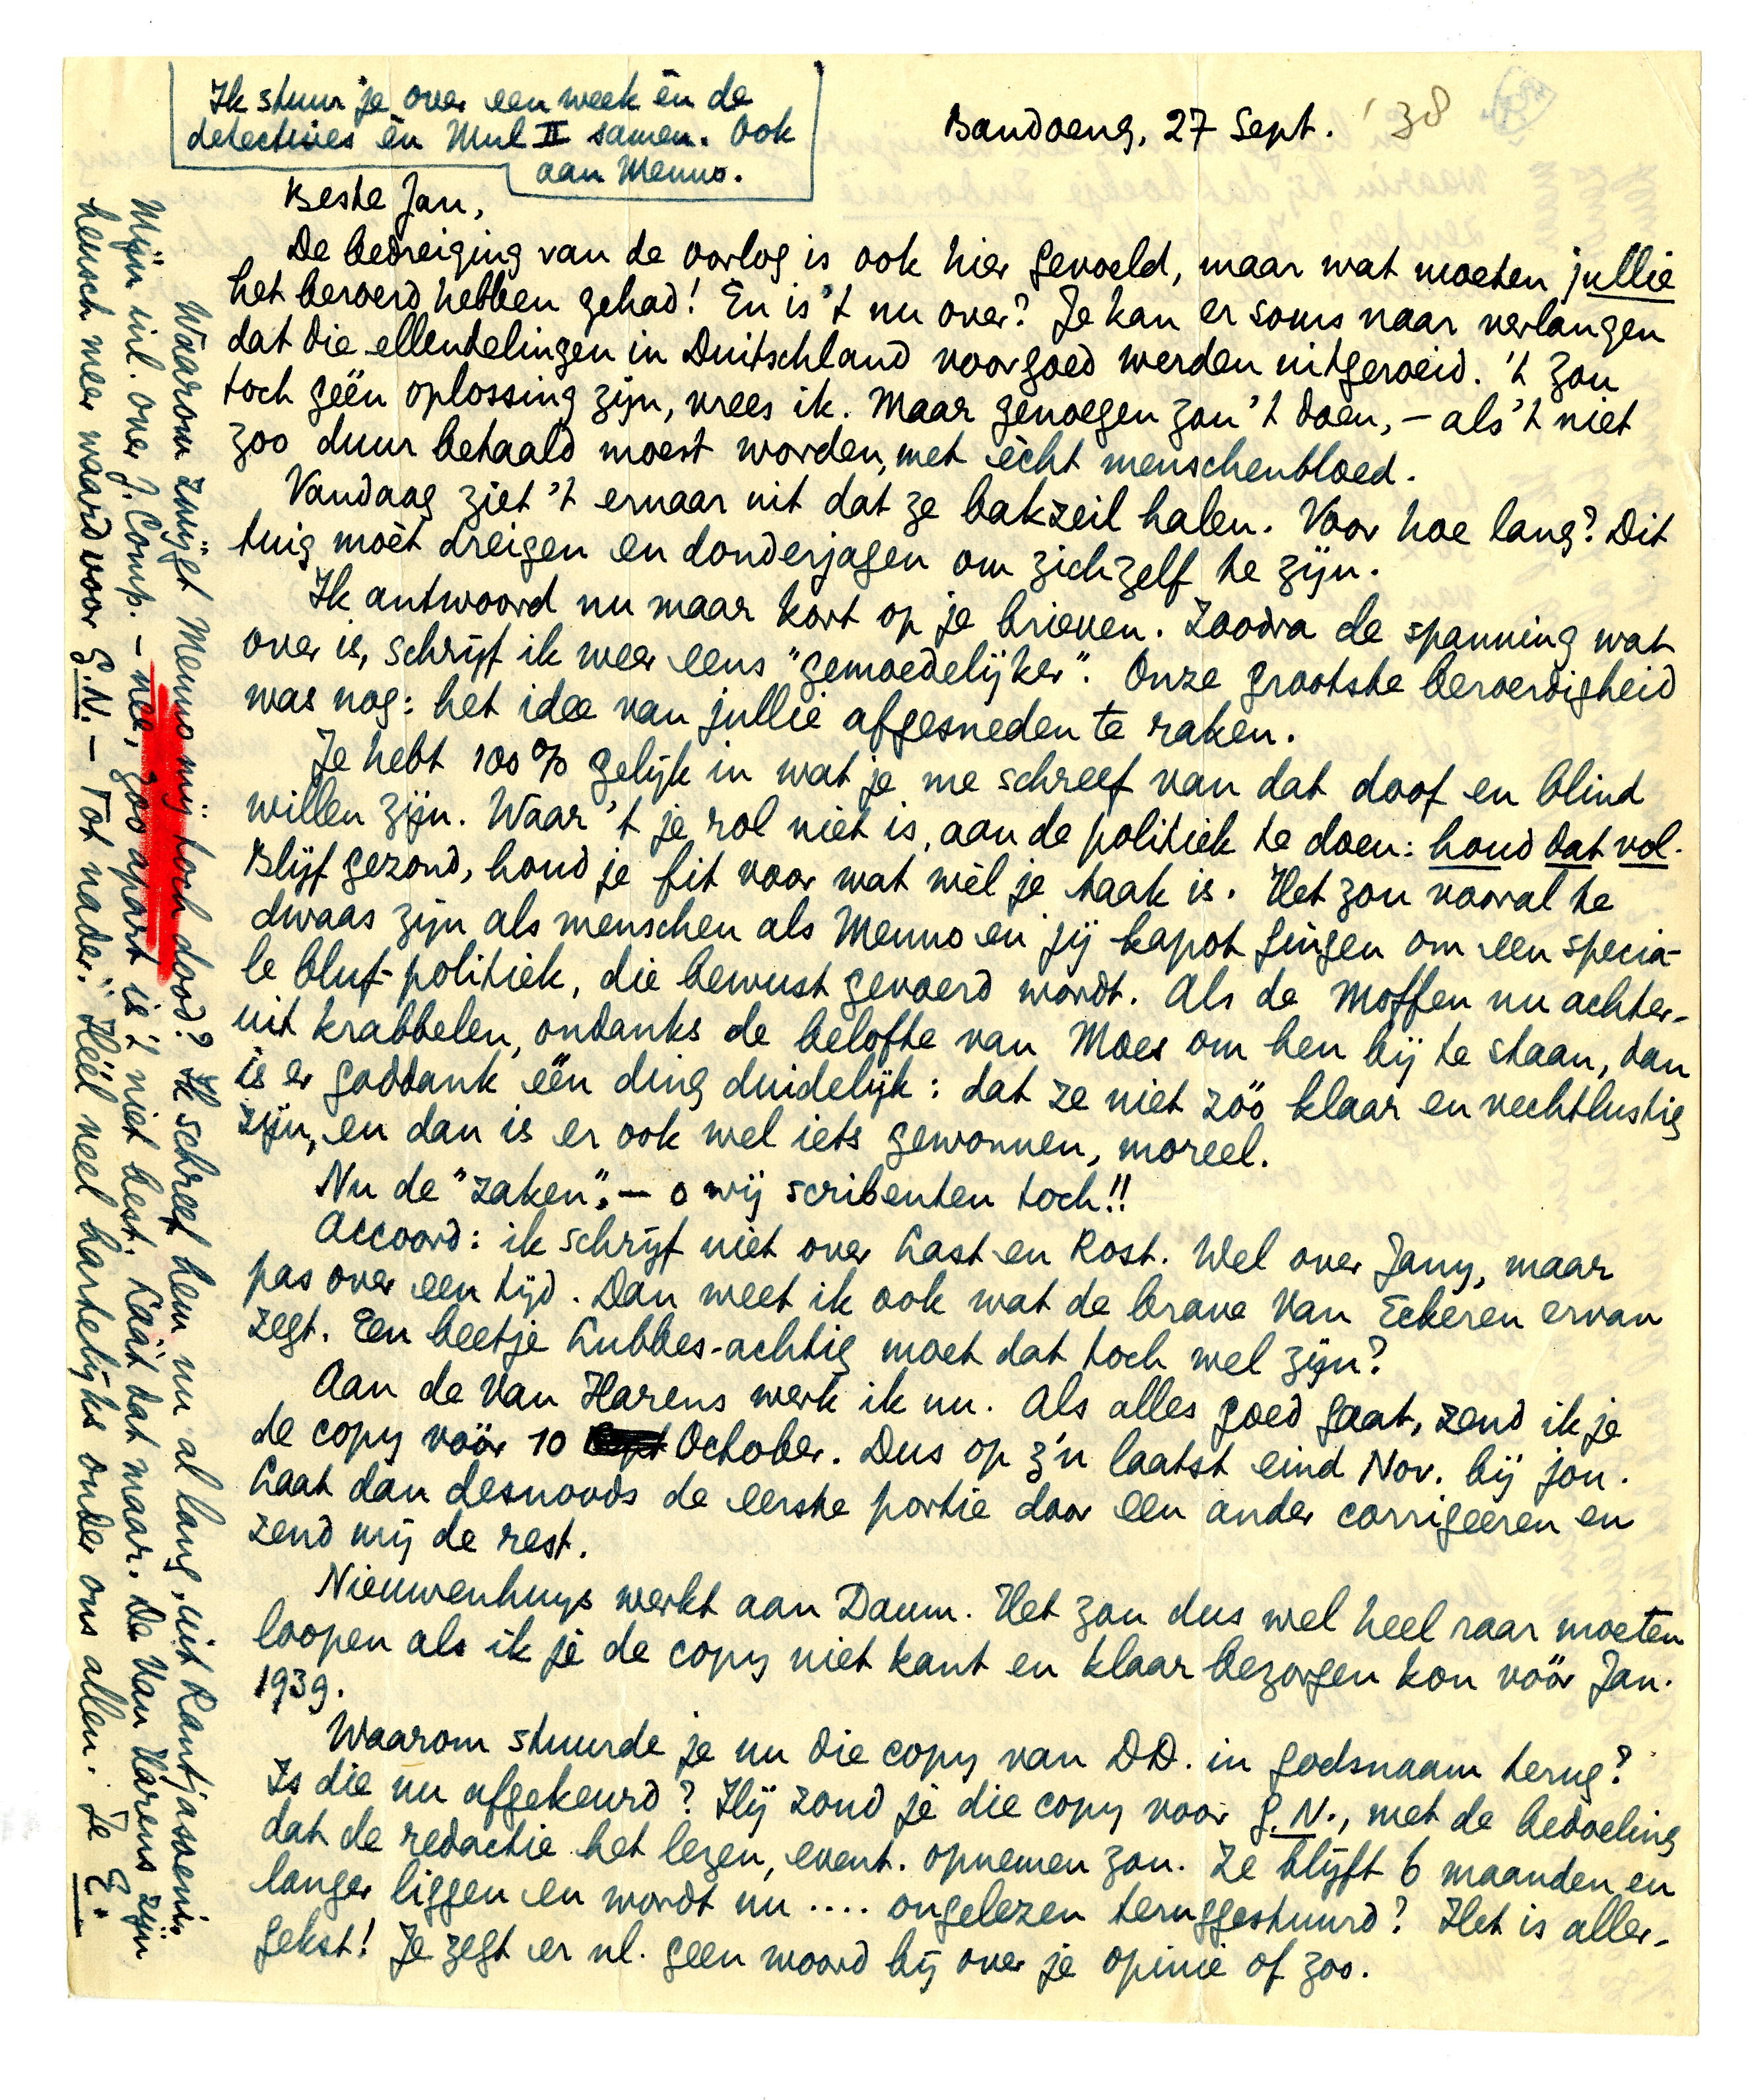 Ik stuur je over een week èn de
detectives èn Mul II samen. Ook
aan Menno.
Bandoeng, 27 Sept. '38
Beste Jan,
De bedreiging van de oorlog is ook hier gevoeld, maar wat moeten jullie
het beroerd hebben gehad! En is 't nu over? Je kan er soms naar verlangen
dat die ellendelingen in Duitschland voorgoed werden uitgeroeid. 't Zou
toch géén oplossing zijn, vrees ik. Maar genoegen zou 't doen, – als 't niet
zoo duur betaald moest worden, met ècht menschenbloed.
Vandaag ziet 't ernaar uit dat ze bakzeil halen. Voor hoe lang? Dit
tuig moèt dreigen en donderjagen om zichzelf te zijn.
Ik antwoord nu maar kort op je brieven. Zoodra de spanning wat
over is, schrijf ik weer eens "gemoedelijker". Onze grootste beroerdigheid
was nog: het idee van jullie afgesneden te raken.
Je hebt 100% gelijk in wat je me schreef van dat doof en blind
willen zijn. Waar 't je rol niet is, aan de politiek te doen: houd dat vol.
Blijf gezond, houd je fit voor wat wèl je taak is. Het zou vooral te
dwaas zijn als menschen als Menno en jij kapot gingen om een specia-
le bluf-politiek, die bewust gevoerd wordt. Als de Moffen nu achter-
uit krabbelen, ondanks de belofte van Moes om hen bij te staan, dan
is er goddank één ding duidelijk: dat ze niet zóó klaar en vechtlustig
zijn, en dan is er ook wel iets gewonnen, moreel.
Nu de "zaken", – o wij scribenten toch!!
Accoord: ik schrijf niet over Last en Rost. Wel over Jany, maar
pas over een tijd. Dan weet ik ook wat de brave Van Eckeren ervan
zegt. Een beetje Lubbes-achtig moet dat toch wel zijn?
Aan de Van Harens werk ik nu. Als alles goed gaat, zend ik je
de copy vóór 10 October. Dus op z'n laatst eind Nov. bij jou.
Laat dan desnoods de eerste portie door een ander corrigeeren en
zend mij de rest.
Nieuwenhuys werkt aan Daum. Het zou dus wel heel raar moeten
loopen als ik je de copy niet kant en klaar bezorgen kon vóór Jan.
1939.
Waarom stuurde je nu die copy van DD. in godsnaam terug?
Is die nu afgekeurd? Hij zond je die copy voor G.N., met de bedoeling
dat de redactie het lezen, event. opnemen zou. Ze blijft 6 maanden en
langer liggen en wordt nu .... ongelezen teruggestuurd? Het is aller-
gekst! Je zegt er nl. geen woord bij over je opinie of zoo.
Waarom zwijgt Menno mij toch dood? Ik schreef hem nu al lang, uit Rantjasoeni.
Mijn inl. over J. Comp. – nee, zoo apart is 't niet best. Láát dat maar. De Van Harens zijn
heusch meer waard voor G.N. – Tot nader. Héél veel hartelijks onder ons allen. Je E.